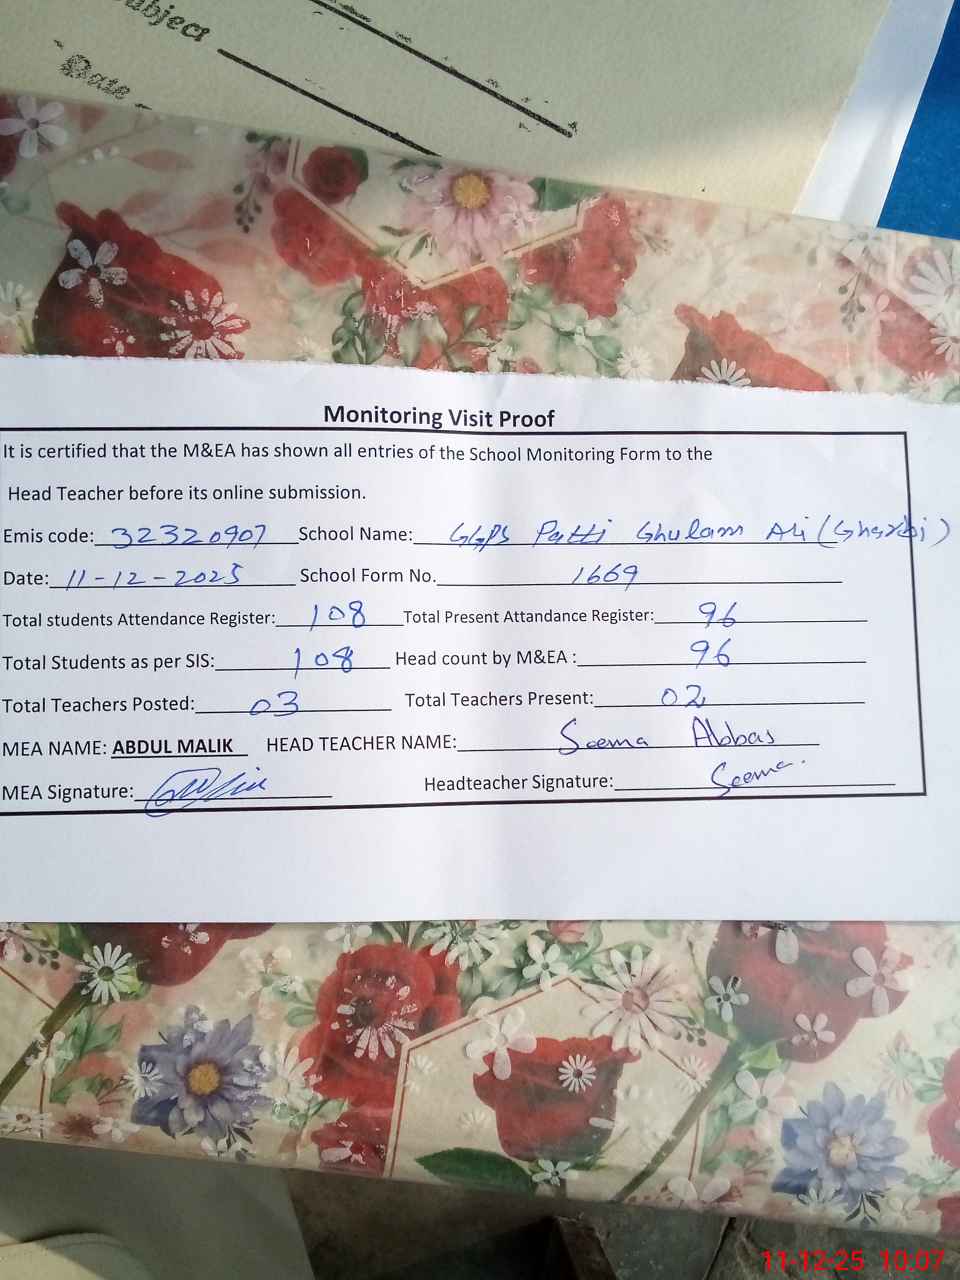 Subject
Date
Monitoring Visit Proof
It is certified that the M&EA has shown all entries of the School Monitoring Form to the
Head Teacher before its online submission.
Emis code: 32320907 School Name: GGPS Patti Ghulam Ali (Gharbi)
Date: 11-12-2025 School Form No. 1669
Total students Attendance Register: 108 Total Present Attandance Register: 96
Total Students as per SIS: 108 Head count by M&EA : 96
Total Teachers Posted: 03 Total Teachers Present: 02
MEA NAME: ABDUL MALIK HEAD TEACHER NAME: Seema Abbas
MEA Signature: Headteacher Signature: Seema.
11-12-25 10:07